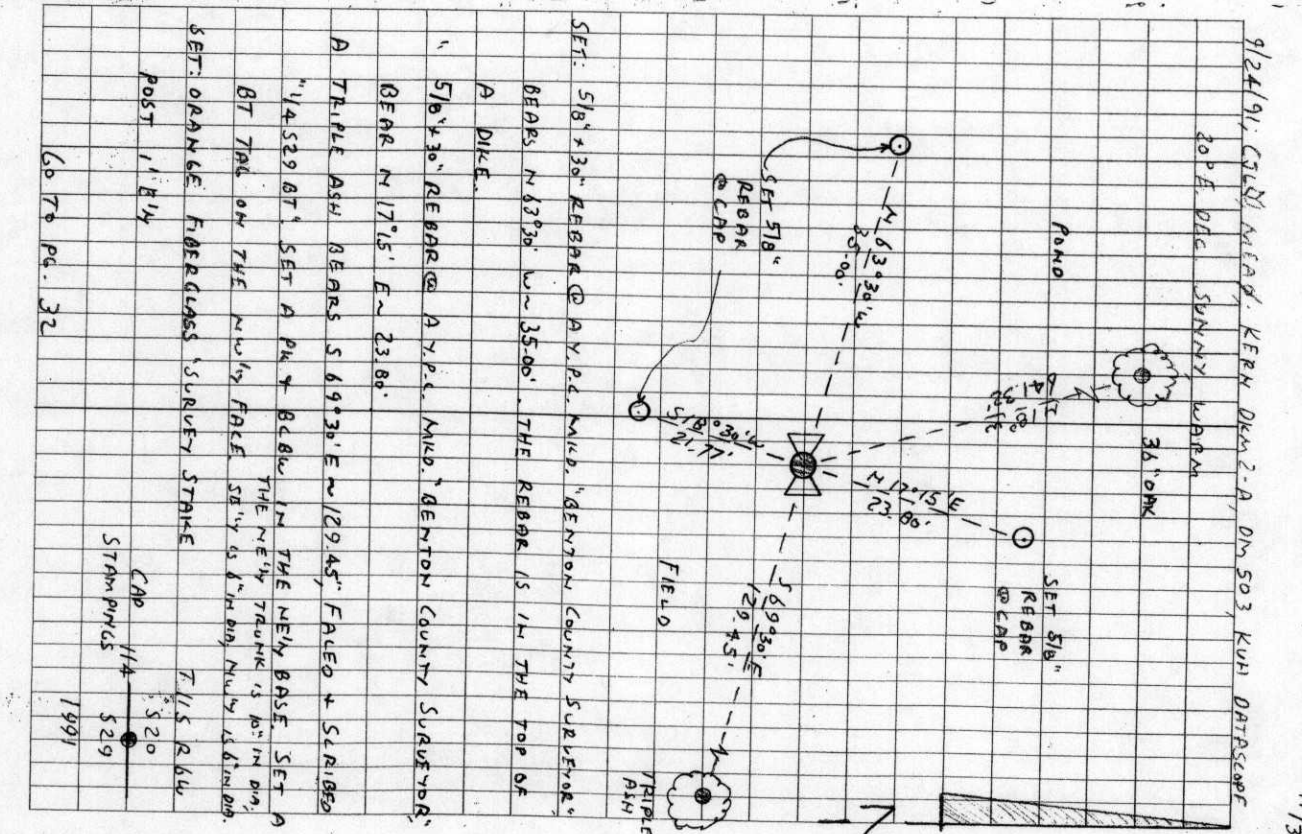 9/24/91, MEAD, KERN DKM2-A, DM 503, KUHI DATASCOPE
20° E. DEC, SUNNY WARM
36" OAK
POND
SET 5/8"
REBAR
@ CAP
N 17°15' E
23.80'
N 63°30' W
35.00'
SET 5/8"
REBAR
@ CAP
S 18°30' W
21.77'
S 69°30' E
129.45'
FIELD
TRIPLE
ASH
SET: 5/8" x 30" REBAR @ A Y.P.C. MKD. "BENTON COUNTY SURVEYOR"
BEARS N 63°30' W ~ 35.00'. THE REBAR IS IN THE TOP OF
A DIKE.
" 5/8" x 30" REBAR @ A Y.P.C. MKD. "BENTON COUNTY SURVEYOR",
BEAR N 17°15' E ~ 23.80'
A TRIPLE ASH BEARS S 69°30' E ~ 129.45', FACED & SCRIBED
"1/4 S29 BT" SET A PK & BCBW IN THE NE'LY BASE. SET A
THE NE'LY TRUNK IS 10" IN DIA,
BT TAG ON THE NW'LY FACE SE'LY IS 8" IN DIA, NW'LY IS 6" IN DIA.
SET: ORANGE FIBERGLASS "SURVEY STAKE
POST 1' E'LY
T.11S R6W
CAP
STAMPINGS
1/4 S20
S29
1991
GO TO PG. 32